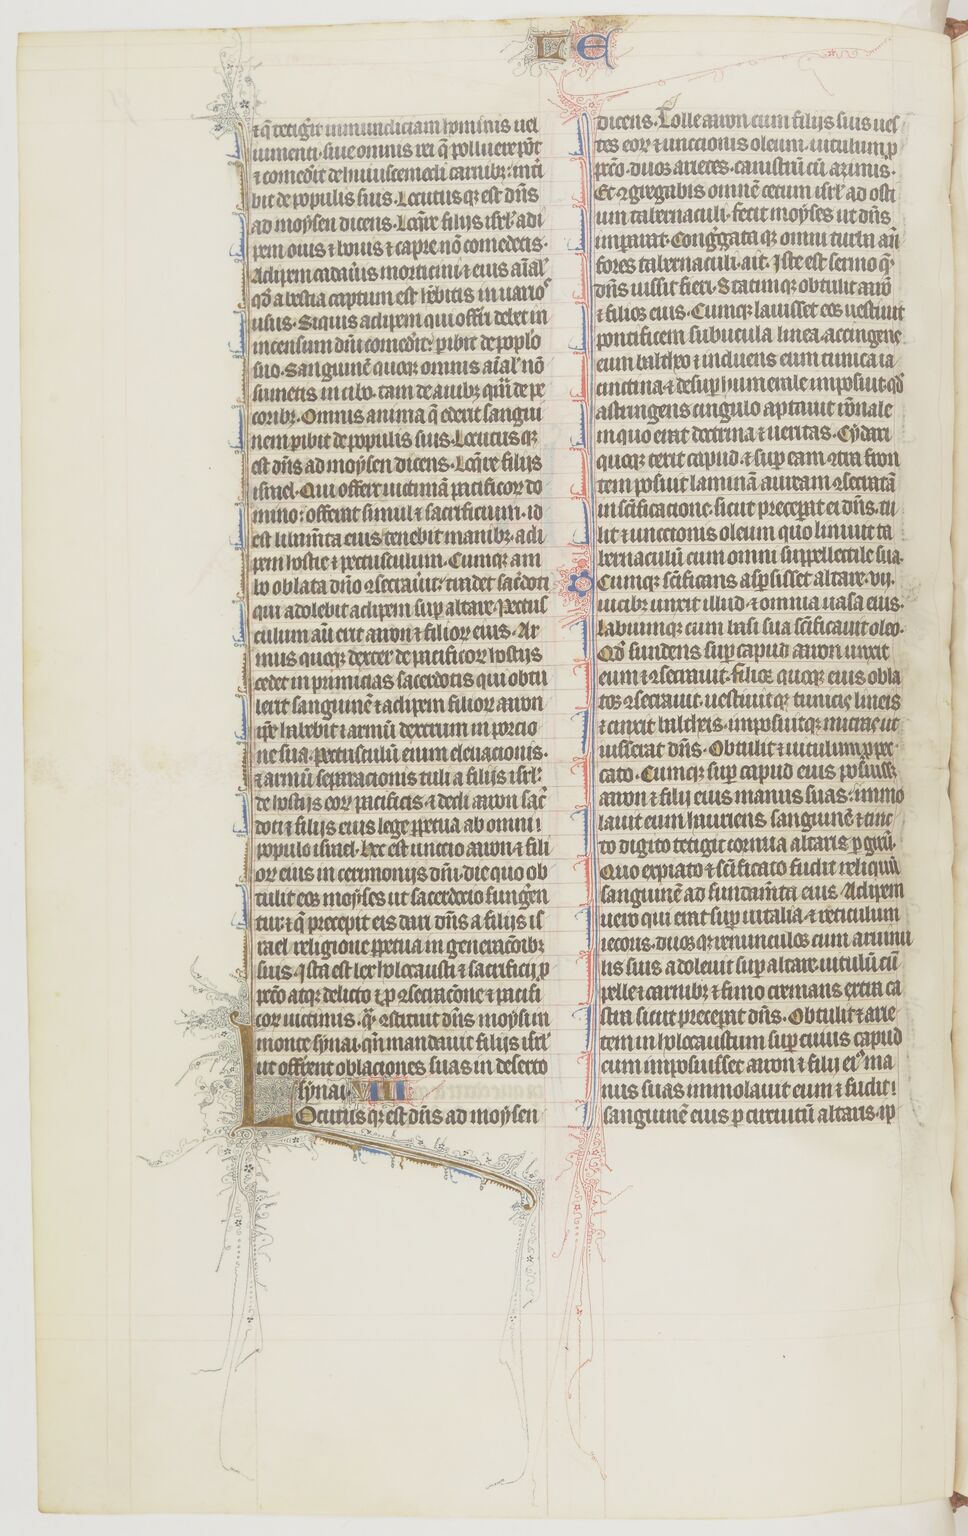 L E
⁊ q̄ tetig̃it inmundiciam hominis uel
iumenti · siue omnis rei q̄ polluere pōt
⁊ comed̃it de huiuscemodi carnibꝫ · int̃i
bit de populis suis · Locutus qꝫ est dñs
ad moẏsen dicens · Loq̃re filijs isrl̃ · adi
pem ouis ⁊ bouis ⁊ capre nō comedetis ·
Adipem cadau̾is morticini ⁊ eius aīal̾
qḋ a bestia captum est h̾ebitis in uarios
usus · Siquis adipem qui offerri debet in
incensum dñi comed̃it: ꝑibit de poplo
suo · Sanguinē quoqꝫ omnis aīal̾ nō
sumetis in cibo · tam de auibꝫ qm̄ de pe
coribꝫ · Omnis anima q̄ ederit sangui
nem ꝑibit de populis suis · Locutus qꝫ
est dñs ad moẏsen dicens · Loq̃re filijs
israel · Qui offert uictimā pacificoꝝ do
mino: offerat simul ⁊ sacrificium · id
est libam̃ta eius tenebit manibꝫ · adi
pem hostie ⁊ pectusculum · Cumqꝫ am
bo oblata dño ꝯsecrau̾it: tradet sac̃doti
qui adolebit adipem suꝑ altare · Pectus
culum aū erit aaron ⁊ filioꝝ eius · Ar
mus quoqꝫ dexter de pacificoꝝ hostijs
cedet in primicias sacerdotis qui obtu
lerit sanguinē ⁊ adipem filioꝝ aaron
ip̃e habebit ⁊ armū dextrum in porcio
ne sua · pectusculū enim eleuacionis ·
⁊ armū separacionis tuli a filijs isrl̃:
de hostijs eoꝝ pacificis · ⁊ dedi aaron sac̃
doti ⁊ filijs eius lege ꝑpetua ab omni
populo israel · hec est unctio aaron ⁊ fili
oꝝ eius in cerimonijs dñi · die quo ob
tulit eos moẏses ut sacerdocio fung̃en
tur · ⁊ q̄ precepit eis dari dñs a filijs is
rael religione ꝑpetua in generac̃oibꝫ
suis · ista est lex holocausti ⁊ sacrificij ꝓ
pcc̃o atqꝫ delicto ⁊ ꝓ ꝯsecracōne ⁊ pacifi
coꝝ uictimis · q̄s ꝯstituit dñs moẏsi in
monte sẏnai · qñ mandauit filijs isrl̃
ut offr̃ent oblaciones suas in deserto
sẏnai · VIII
Locutus qꝫ est dñs ad moẏsen
dicens · Tolle aaron cum filijs suis ues
tes eoꝝ ⁊ unctionis oleum · uitulum ꝓ
pcc̃o · duos arietes · canistrū cū azimis ·
Et ꝯgregabis omnē cetum isrl̃ ad osti
um tabernaculi · fecit moẏses ut dñs
imꝑarat · Congr̃gata qꝫ omni turba an̄
fores tabernaculi · ait · Iste est sermo q̃
dñs iussit fieri · Statimqꝫ obtulit aarō
⁊ filios eius · Cumqꝫ lauisset eos uestiuit
pontificem subucula linea · accingens
eum baltheo ⁊ induens eum tunica ia
cinctina · ⁊ desuꝑ humerale imposuit · qḋ
astringens cingulo aptauit rōnale
in quo erat doctrina ⁊ ueritas · Cẏdari
quoqꝫ texit capud · ⁊ suꝑ eam ꝯtra fron
tem posuit laminā auream ꝯsecratā
in scīficacione · sicut preceꝑat ei dñs · tu
lit ⁊ unctionis oleum quo liniuit ta
bernaculū cum omni suꝑpellectile sua ·
Cumqꝫ scīficans asꝑsisset altare · vij ·
uicibꝫ unxit illud · ⁊ omnia uasa eius ·
labiumqꝫ cum basi sua scīficauit oleo ·
Qḋ fundens suꝑ capud aaron unxit
eum ⁊ ꝯsecrauit · filios quoqꝫ eius obla
tos ꝯsecrauit · uestiuitqꝫ tunicis lineis
⁊ cinxit baltheis · imposuitqꝫ mitras ut
iusserat dñs · Obtulit ⁊ uitulum ꝓ pec
cato · Cumqꝫ suꝑ capud eius posuissꝫ
aaron ⁊ filij eius manus suas: immo
lauit eum hauriens sanguinē ⁊ tinc
to digito tetigit cornua altaris ꝑ girū ·
Quo expiato ⁊ scīficato fudit reliquū
sanguinē ad fundam̃ta eius · Adipem
uero qui erat suꝑ uitalia ⁊ reticulum
iecoris · duos qꝫ renunculos cum aruinu
lis suis adoleuit suꝑ altare · uitulū cū
pelle ⁊ carnibꝫ ⁊ fimo cremans extra ca
stra sicut preceꝑat dñs · Obtulit ⁊ arie
tem in holocaustum suꝑ cuius capud
cum imposuisset aaron ⁊ filij eiꝰ ma
nus suas immolauit eum ⁊ fudit
sanguinē eius ꝑ circuitū altaris · ip̄